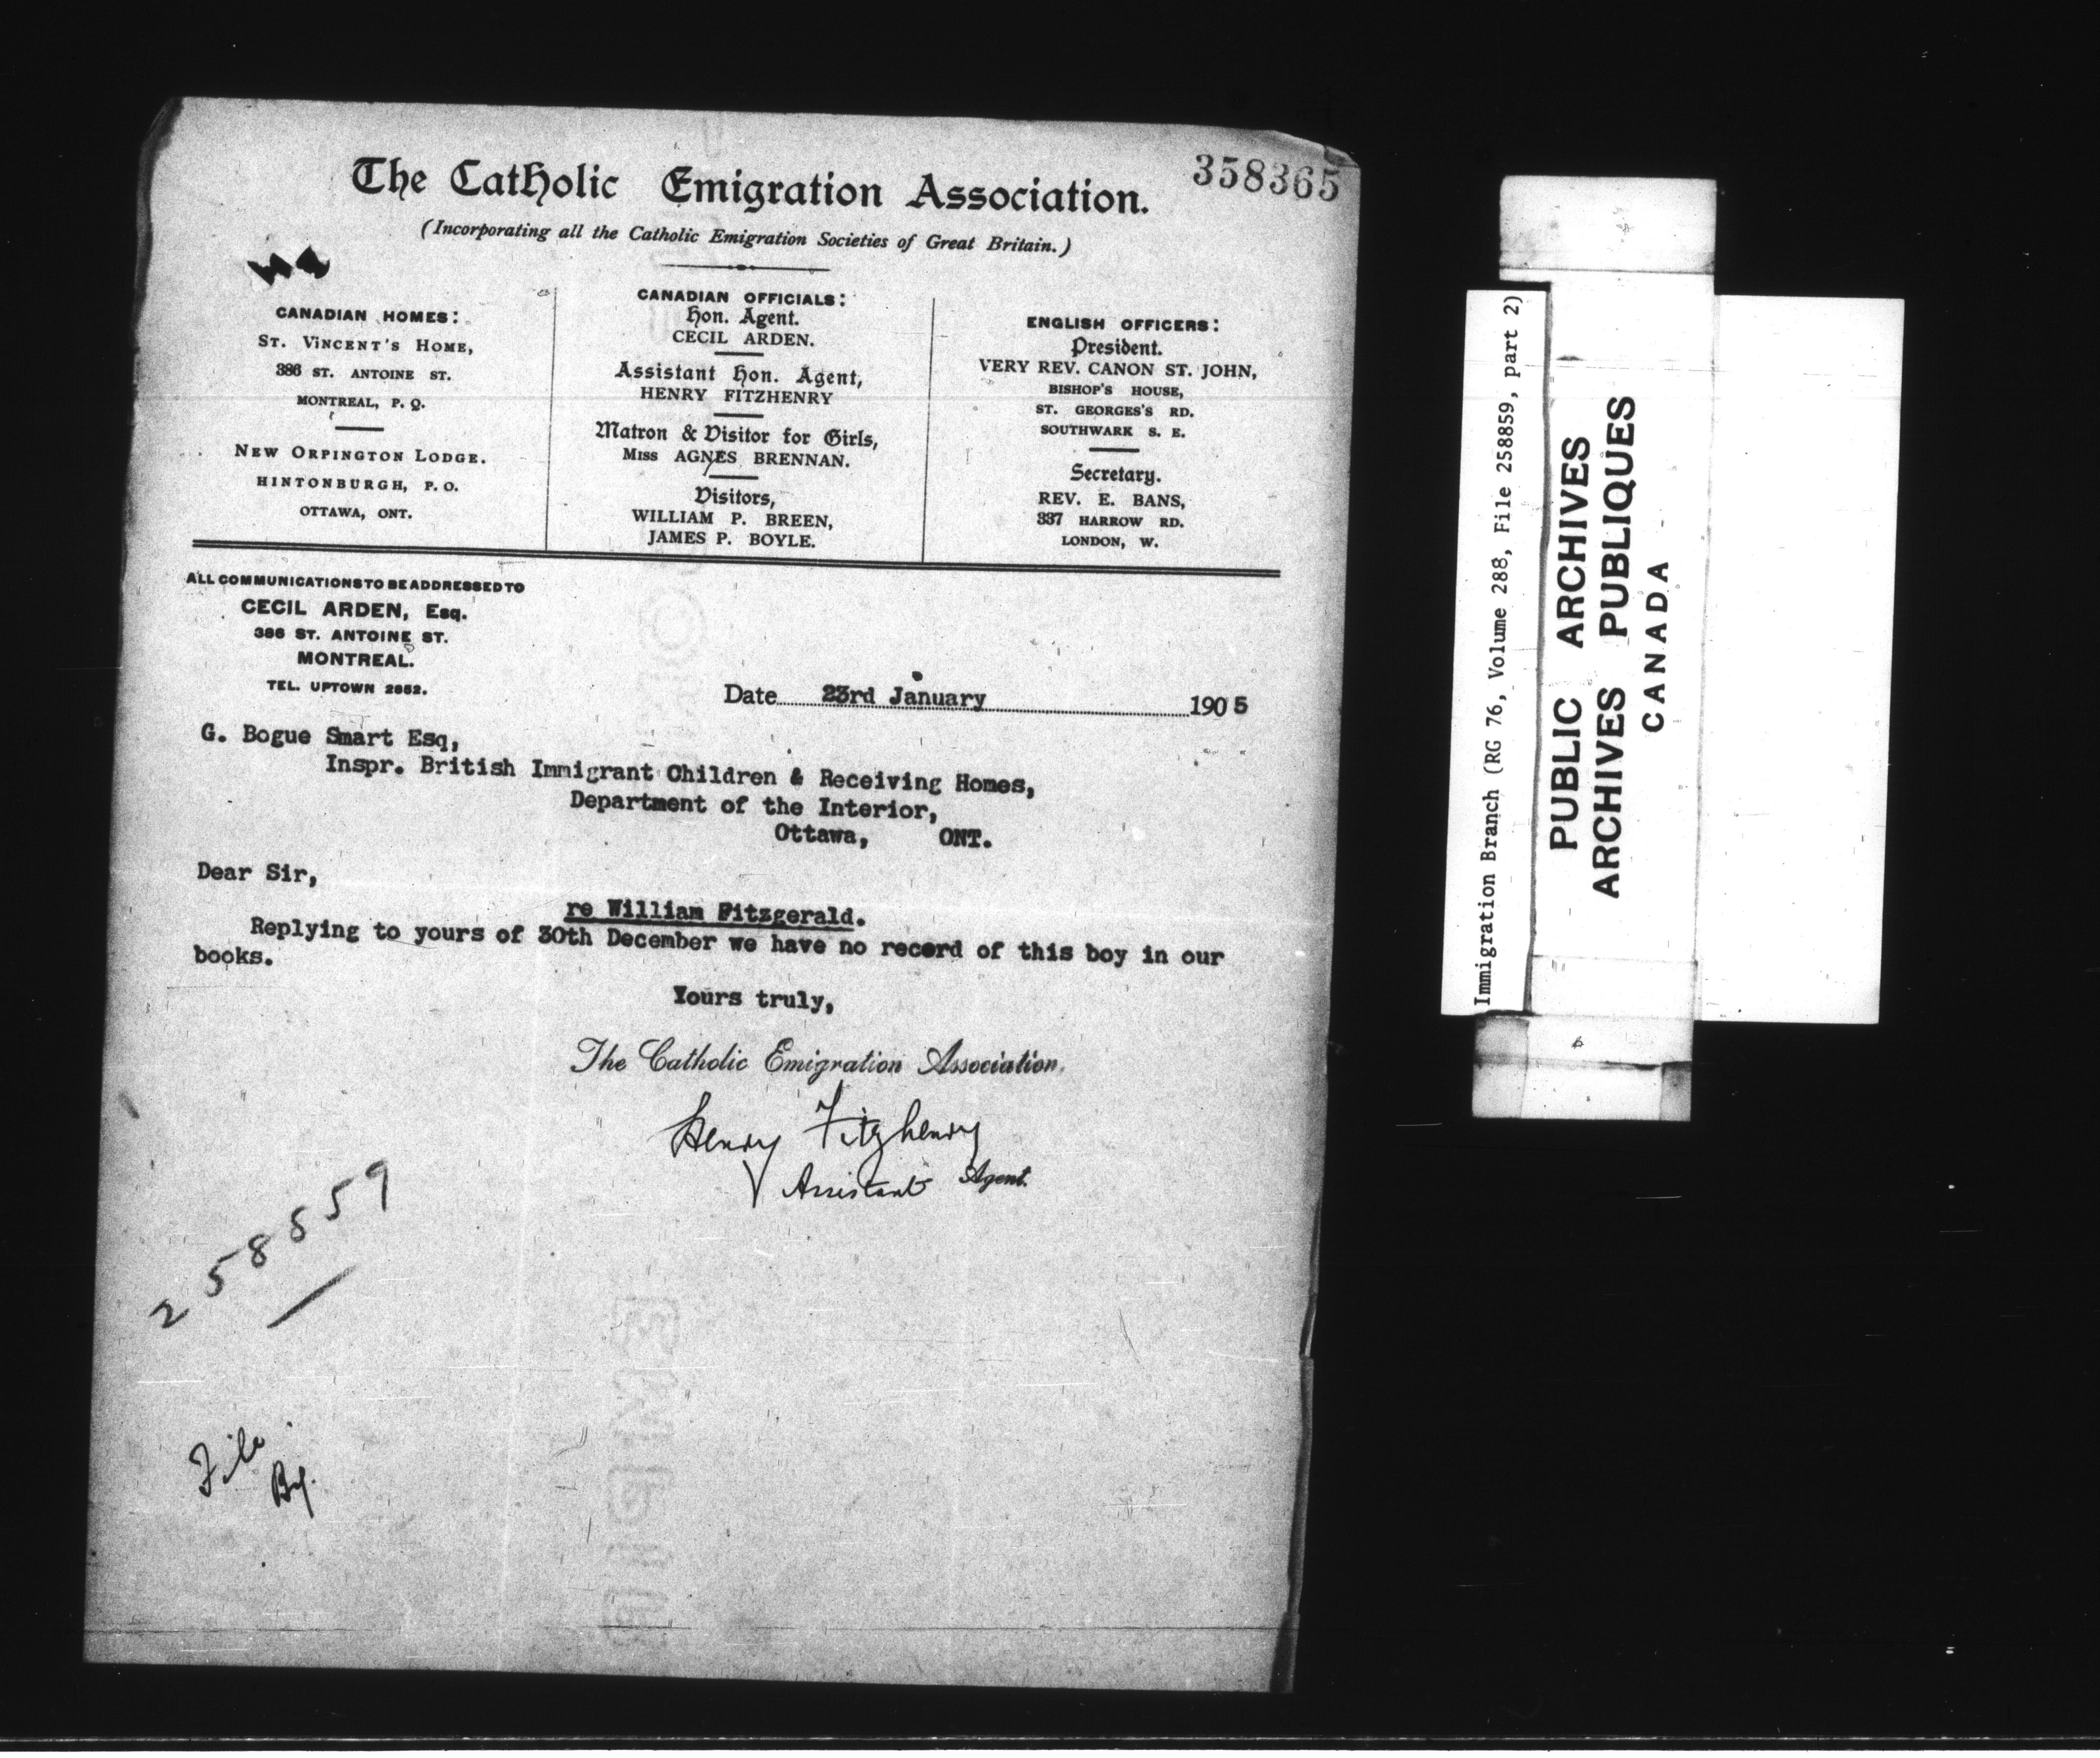 358365
The Catholic Emigration Association.
(Incorporating all the Catholic Emigration Societies of Great Britain.)
CANADIAN HOMES:
ST. VINCENT'S HOME,
386 ST. ANTOINE ST.
MONTREAL, P. Q.
NEW ORPINGTON LODGE.
HINTONBURGH, P. O.
OTTAWA, ONT.
CANADIAN OFFICIALS:
Hon. Agent.
CECIL ARDEN.
Assistant Hon. Agent,
HENRY FITZHENRY
Matron & Visitor for Girls,
Miss AGNES BRENNAN.
Visitors,
WILLIAM P. BREEN,
JAMES P. BOYLE.
ENGLISH OFFICERS:
President.
VERY REV. CANON ST. JOHN,
BISHOP'S HOUSE,
ST. GEORGES'S RD.
SOUTHWARK S. E.
Secretary.
REV. E. BANS,
337 HARROW RD.
LONDON, W.
ALL COMMUNICATIONS TO BE ADDRESSED TO
CECIL ARDEN, Esq.
386 ST. ANTOINE ST.
MONTREAL.
TEL. UPTOWN 2652.
Date 23rd January 1905
G. Bogue Smart Esq,
Inspr. British Immigrant Children & Receiving Homes,
Department of the Interior,
Ottawa, ONT.
Dear Sir,
re William Fitzgerald.
Replying to yours of 30th December we have no record of this boy in our
books.
Yours truly,
The Catholic Emigration Association.
Henry Fitzhenry
Assistant Agent.
258859
File
Immigration Branch (RG 76, Volume 288, File 258859, part 2)
PUBLIC ARCHIVES
ARCHIVES PUBLIQUES
CANADA